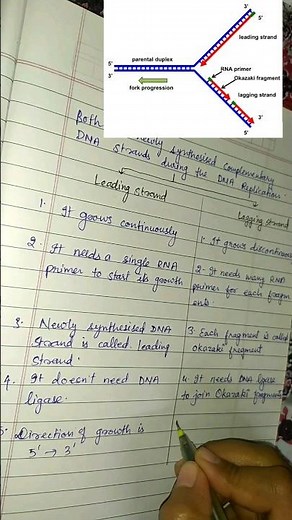 3'
5'
leading strand
parental duplex
5'
3'
RNA primer
Okazaki fragment
fork progression
lagging strand
3'
5'
Both newly synthesised complementary
DNA strands during the DNA Replication
Leading strand
1. It grows continuously
2. It needs a single RNA
primer to start its growth
3. Newly synthesised DNA
strand is called leading
strand.
4. It doesn't need DNA
ligase.
5. Direction of growth is
5' → 3'
Lagging strand
1. It grows discontinuous
2- It needs many RNA
primer for each fragm
3. Each fragment is called
okazaki fragment
4. It needs DNA ligase
to join Okazaki fragments